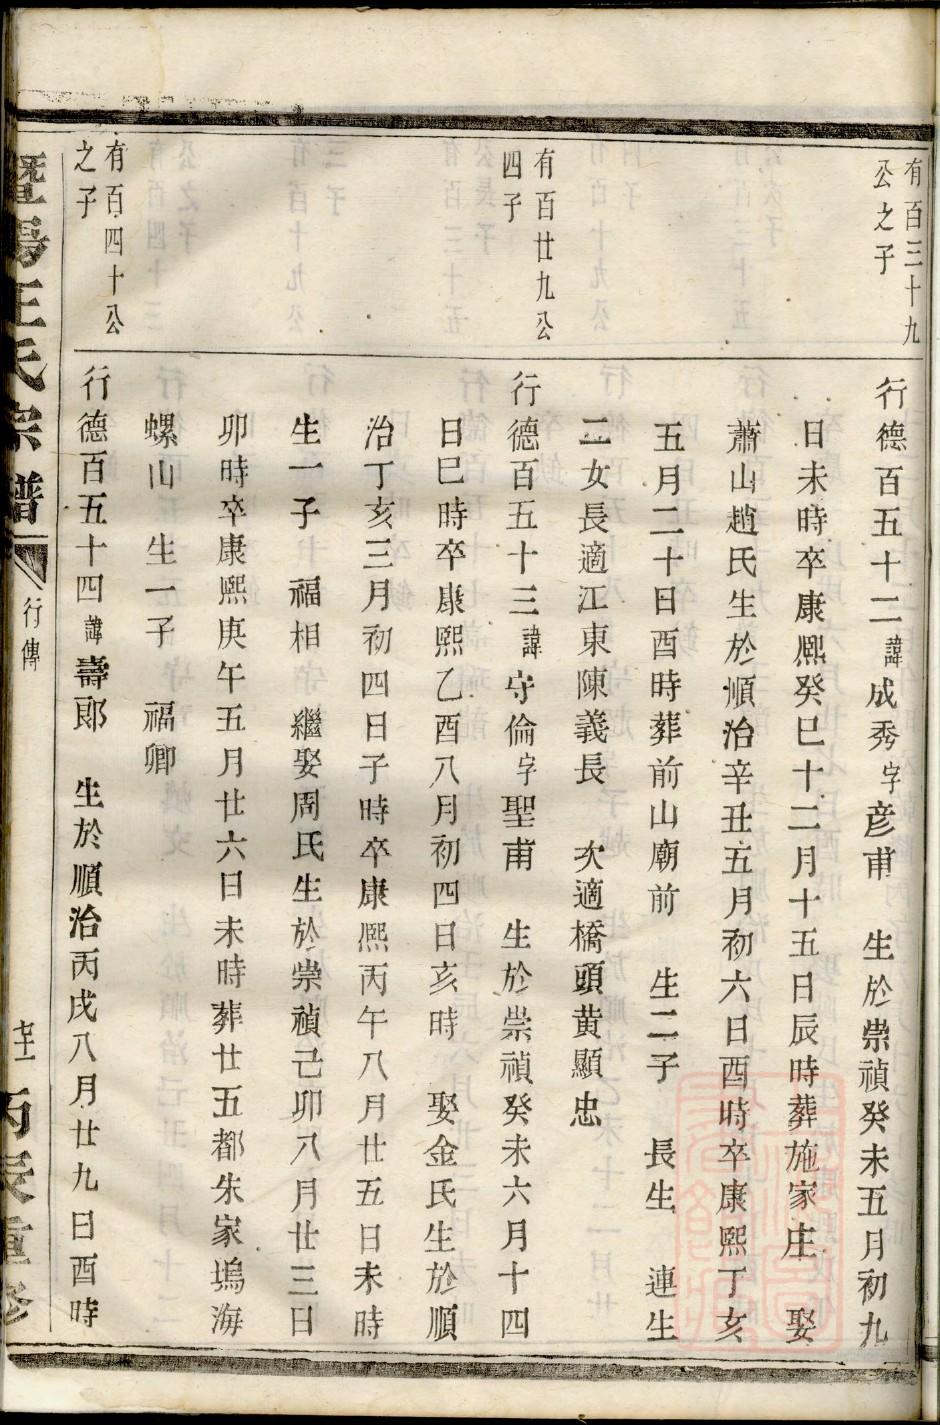 有百三十九
公之子
行德百五十二諱成秀字彦甫　生於崇禎癸未五月初九
日未時卒康熙癸巳十二月十五日辰時葬施家庄　娶
蕭山趙氏生於順治辛丑五月初六日酉時卒康熙丁亥
五月二十日酉時葬前山廟前　生二子　長生　連生
二女長適江東陳義長　次適橋頭黄顯忠
有百廿九公
四子
行德百五十三諱守倫字聖甫　生於崇禎癸未六月十四
日巳時卒康熙乙酉八月初四日亥時　娶金氏生於順
治丁亥三月初四日子時卒康熙丙午八月廿五日未時
生一子　福相　繼娶周氏生於崇禎己卯八月廿三日
卯時卒康熙庚午五月廿六日未時葬廿五都朱家塢海
螺山　生一子　福卿
有百四十公
之子
行德百五十四諱壽郎　生於順治丙戌八月廿九日酉時
暨陽王氏宗譜
行傳
丙辰重修